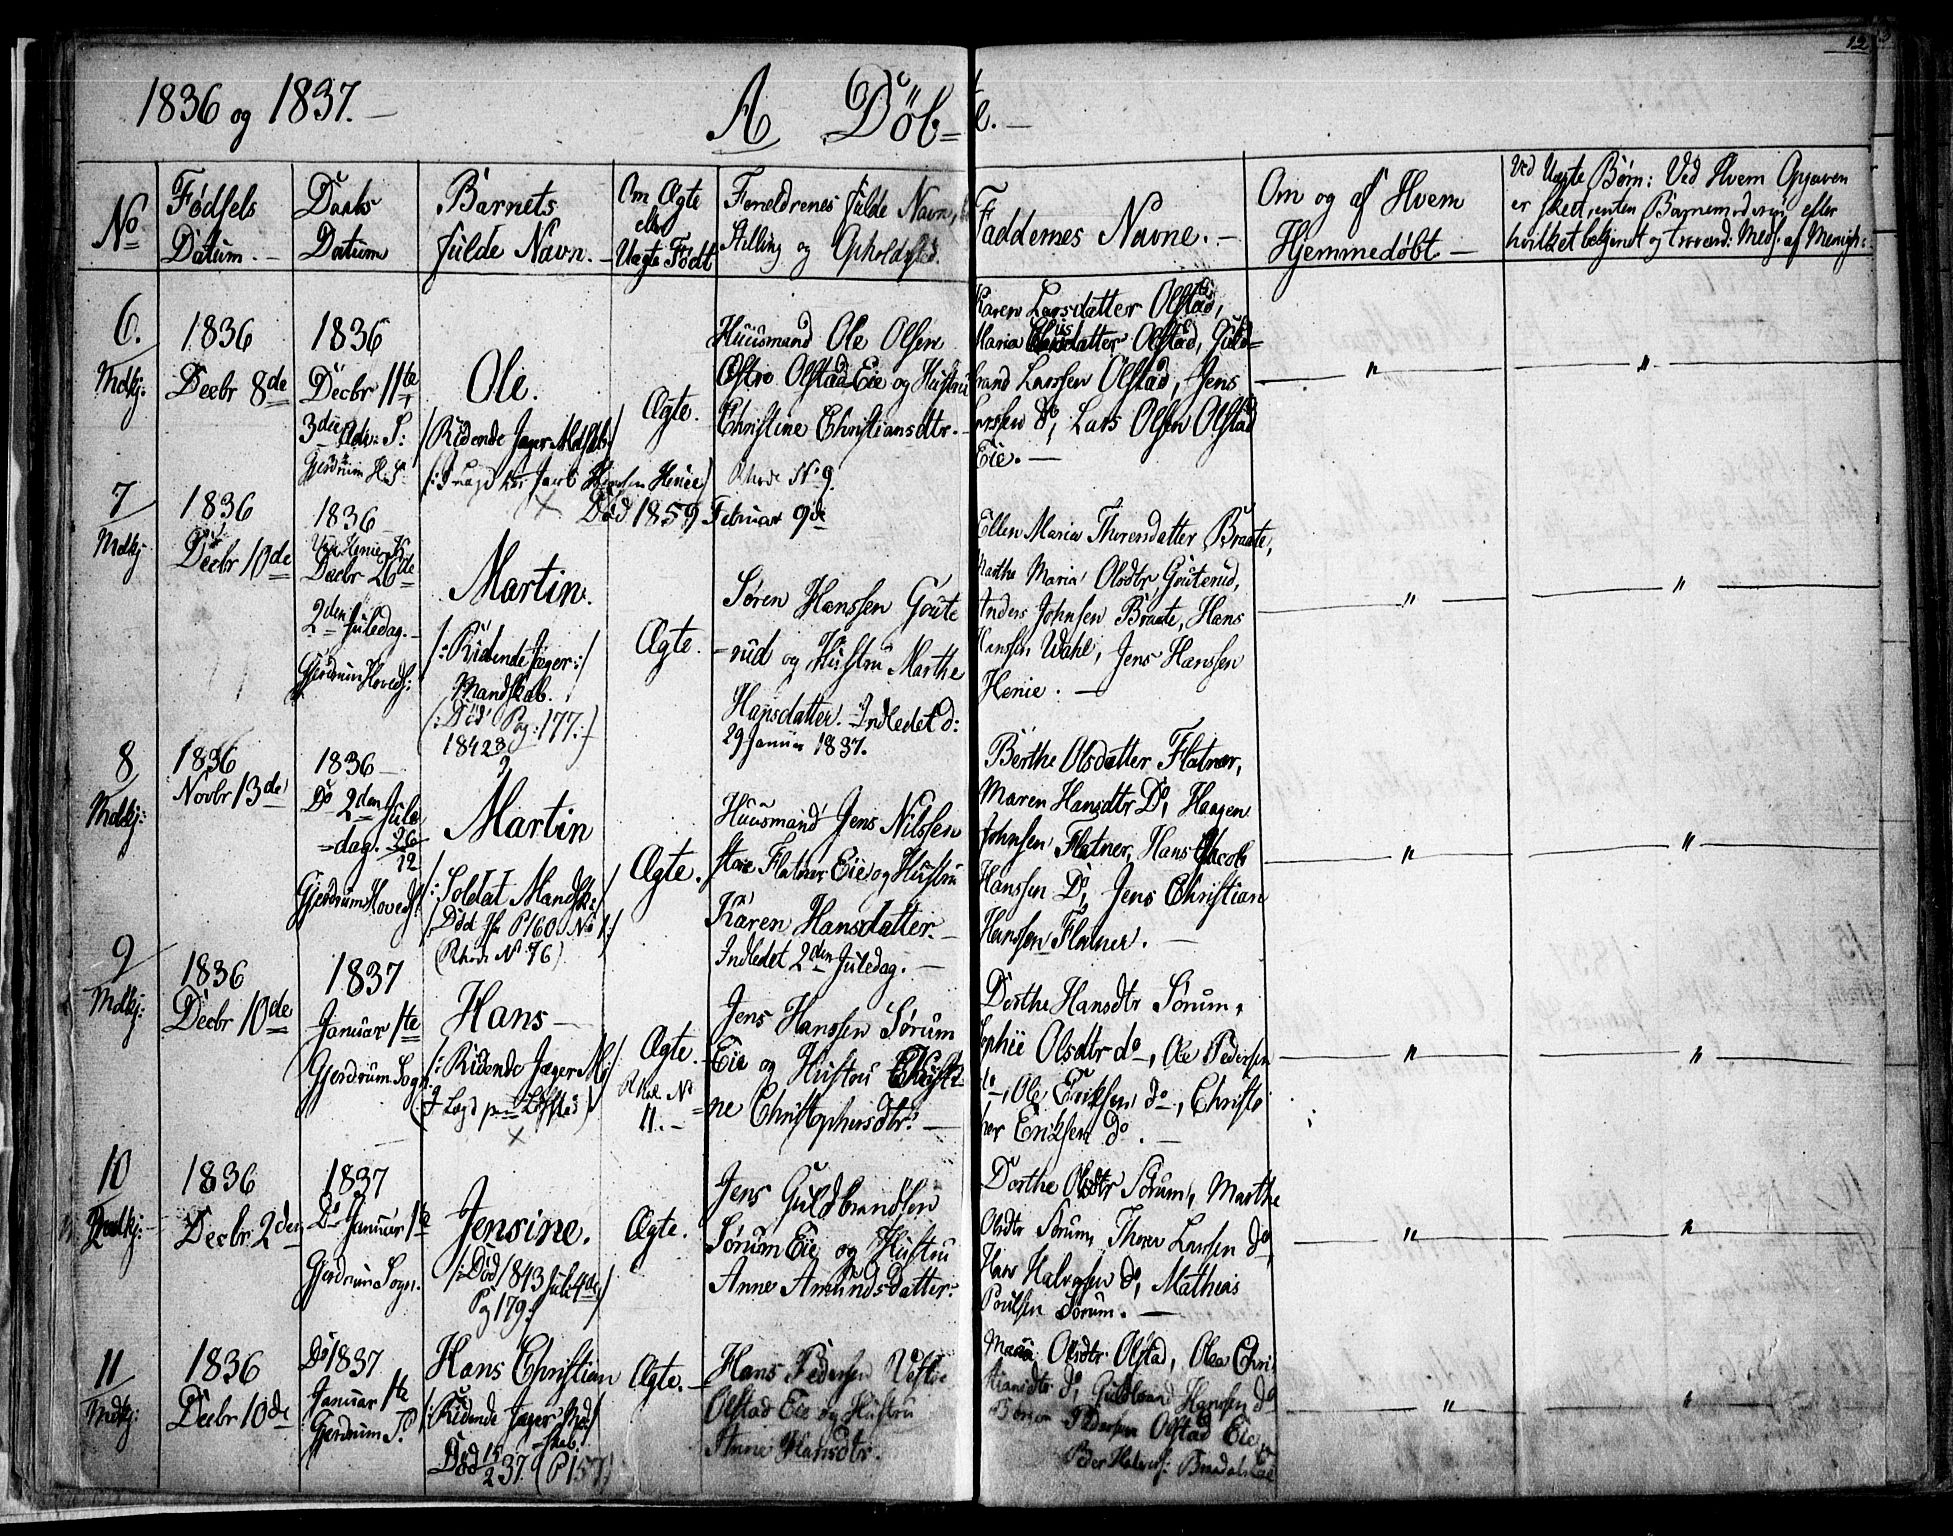 12
1836 og 1837. —
A Döb=
te. —
No
Fødsels
Datum. —
Daabs
Datum
Barnets
fulde Navn. —
Om Ægte
eller
Uægte Født
Forældrenes fulde Navn,
Stilling og Opholdsted.
Faddernes Navne. —
Om og af Hvem
Hjemmedøbt —
Ved Uægte Børn: Ved Hvem Opgaven
er skeet, enten Barnemoderen, eller
6.
Mdkj.
1836
Decbr 8de
1836
Decbr 11te
3die Adv: S:
Gjerdrum
Ole.
/Ridende Jæger
Ægte.
Huusmand Ole Olsen
Østre Olstad Eie og Hustru
Christine Christiansdtr. —
No 9.
Død 1859 Februar 9de
Karen Larsdatter Olstad,
Maria Olstad, Guld=
brand Larssen Olstad, Jens
Larssen do, Lars Olsen Olstad
Eie. —
"
"
7
Mdkj
1836
Decbr 10de
1836
Decbr 26de
2den Juledag. —
Gjerdrum Hoveds:
Martin.
/: Ridende Jæger :/
Mandskab.
(: Död Pag: 177. —)
1842
Ægte.
Søren Hanssen Grute
rud og Hustru Marthe
Hansdatter. — Indledet d:
29 Januar 1837.
Ellen Maria Thorensdatter Braate,
Marthe Maria Olsdtr Gruterud,
Anders Johnsen Braate, Hans
Hanssen Wahl, Jens Hanssen
Henie. —
"
"
8
Mdkj:
1836
Novbr 13de
1836 —
Do 2den Jule
=dag. 26/12
Gjerdrum Hoveds:
Martin
/: Soldat Mandsk:/
Död P 160 No 1:/
No 76)
Ægte.
Huusmand Jens Nilssen
store Flatner Eie og Hustru
Karen Hansdatter. —
Indledet 2den Juledag. —
Berthe Olsdatter Flatner,
Maren Hansdtr Do, Haagen
Johnsen Flatner, Hans Jacob
Hanssen Do, Jens Christian
Hanssen Flatner. —
"
"
9
Mdkj:
1836
Decbr 10de
1837
Januar 1te
Gjerdrum Sogn.
Hans —
/: Ridende Jæger M:/
Ægte. —
No
11. —
Jens Hanssen Sörum
Eie og Hustru Christi=
=ne Christophersdtr. —
Dorthe Hansdtr Sörum,
Sophie Olsdtr do, Ole Pedersen
do, Ole Eriksen do, Christo
pher Eriksen do. —
"
"
10
Mdkj:
1836
Decbr 2den
1837
Do Januar 1te
Gjerdrum Sogn.
Jensine.
/: Död 1843 Juli 4de/
Pag 179:/
Ægte.
Jens Guldbrandsen
Sörum Eie og Hustru
Anne Amundsdatter
Dorthe Olsdtr Sörum, Marthe
Olsdtr Sörum, Thorer Larssen do,
Hans Halvorsen do, Mathias
Poulsen Sorum. —
"
"
11
Mdkj:
1836
Decbr 10de
Do 1837
Januar 1te
Gjerdrum S.
Hans Christian
/: Ridende Jæger Mand/
=skab.
Död 15/2 37. (P 157)
Ægte. —
Hans Pedersen Vestre
Olstad Eie og Hustru
Anne Hansdtr.
Maria Olsdtr Olstad, Olea Chri
stiansdtr do, Guldbrand Hanssen do
Pedersen Olstad Eie,
Peder Halvors:
"
"